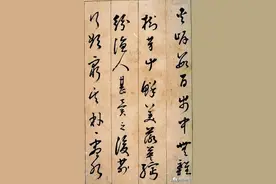 夹岸数百步中无杂
树芳草鲜美落英缤
纷渔人甚异之复前
行欲穷其林林尽水